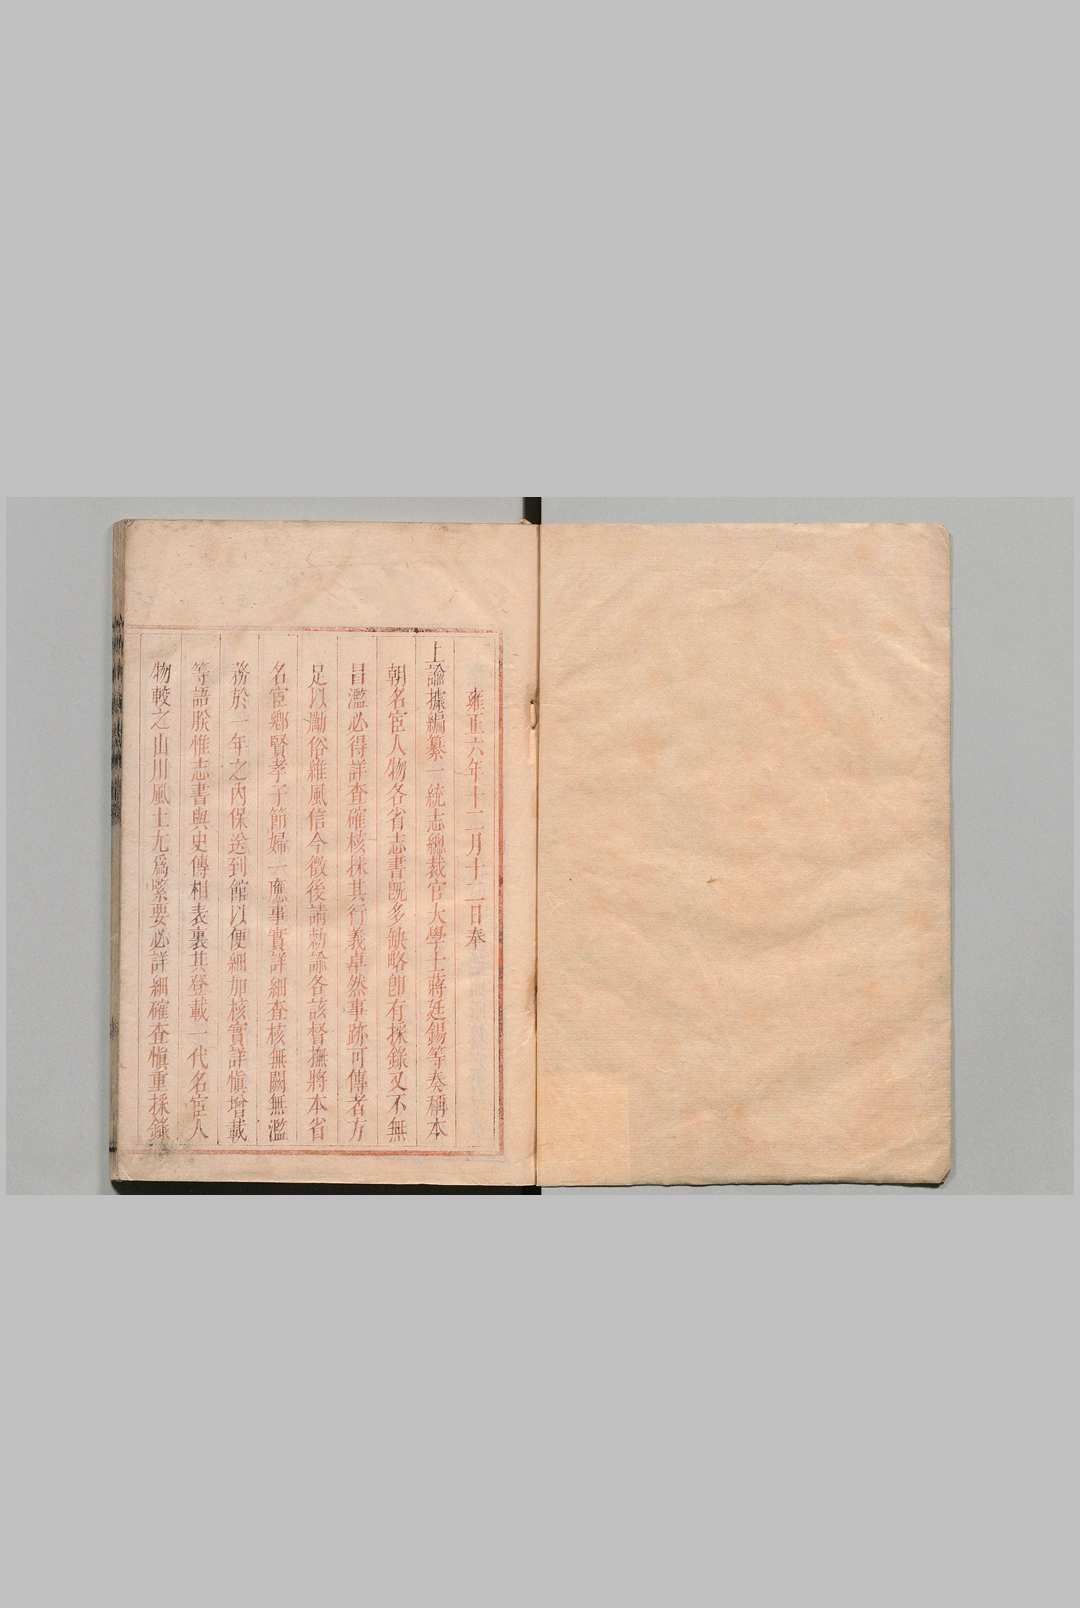 雍正六年十二月十二日奉
上諭據編纂一統志總裁官大學士蔣廷錫等奏稱本
朝名宦人物各省志書旣多缺略卽有採錄又不無
冒濫必得詳查確核採其行義卓然事跡可傳者方
足以勵俗維風信今徵後請勑諭各該督撫將本省
名宦鄕賢孝子節婦一應事實詳細查核無闕無濫
務於一年之內保送到館以便細加核實詳愼增載
等語朕惟志書與史傳相表裏其登載一代名宦人
物較之山川風土尤爲緊要必詳細確查愼重採錄